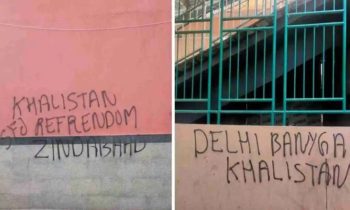 KHALISTAN
REFRENDOM
ZINDABAAD
DELHI BANYGA
KHALISTAN